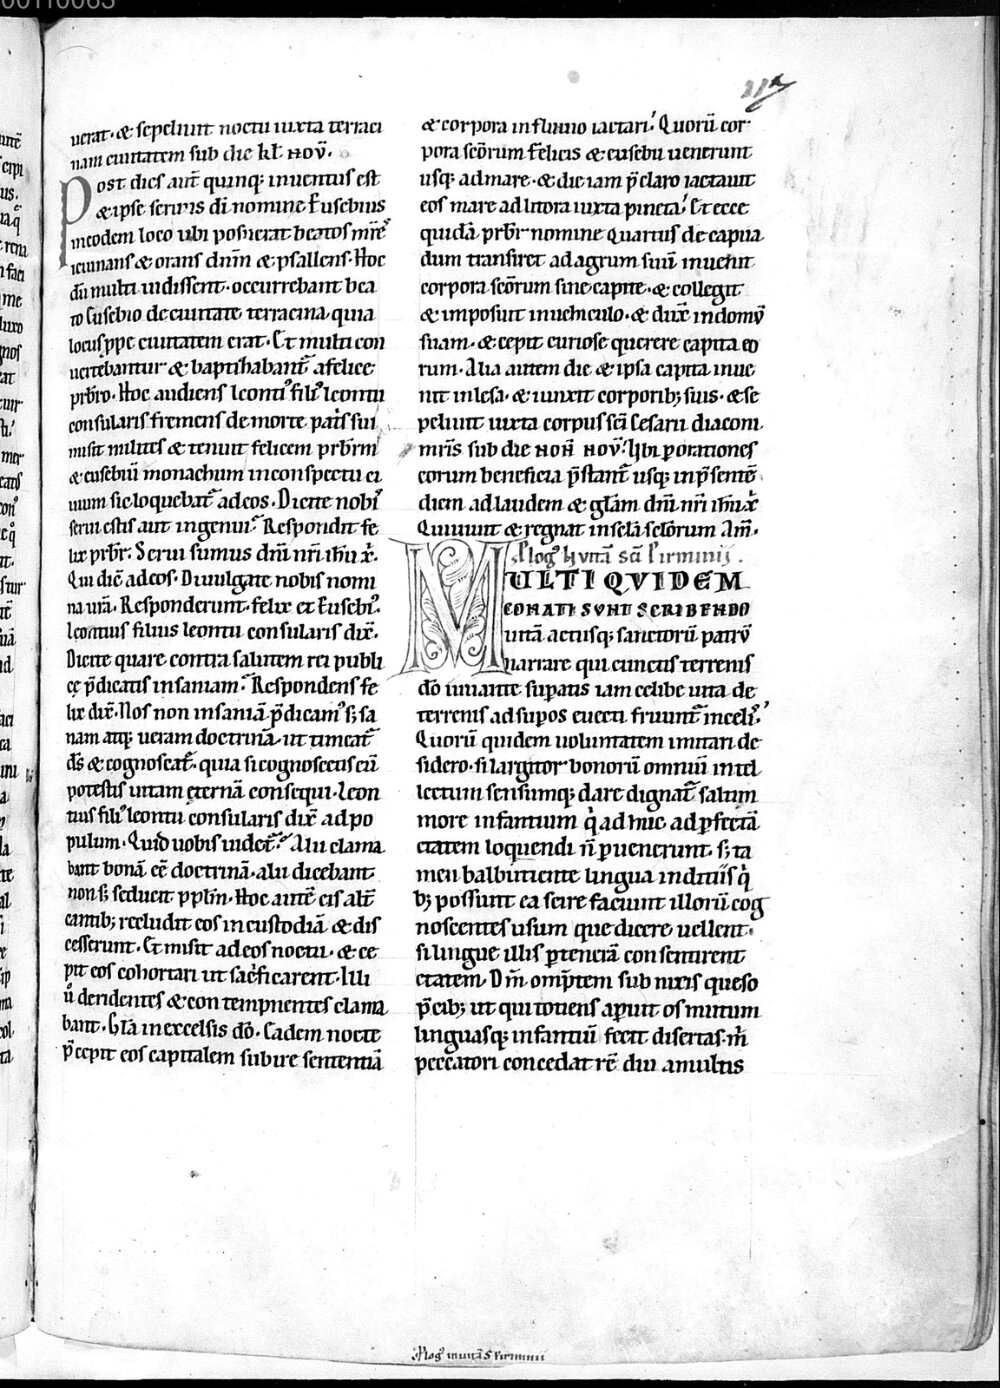 uerat· & sepeliuit noctu iuxta terraci
nam ciuitatem sub die kł nov̄·
Post dies aut̄ quinq; inuentus est
& ipse seruus di nomine Eusebius
in eodem loco ubi posuerat beatos mr̄es
ieiunans & orans dn̄m & psallens· Hoc
dū multi uidissent· occurrebant bea
to Eusebio de ciuitate terracina· quia
locus ꝓpe ciuitatem erat· Et multi con
uertebantur & baptizabant᷑ a felice
prb̄ro· Hoc audiens leontiꝰ filiꝰ leontii
consularis fremens de morte patis sui
misit milites & tenuit felicem prb̄rm
& eusebiū monachum in conspectu ci
uium sic loquebat᷑ ad eos· Dicite nobis
serui estis aut ingenui? Respondit fe
lix prb̄r· Serui sumus dn̄i nr̄i ih̄u x̄·
Qui dic̄ ad eos· Diuulgate nobis nomi
na urā· Responderunt· felix et Eusebiꝰ·
leontius filius leontii consularis dix̄·
Dicite quare contra salutem rei publi
cę p̄dicatis insaniam? Respondens fe
lix dix̄· Nos non insaniā p̄dicamꝰ s; sa
nam atq; ueram doctrinā· ut timeat᷑
ds̄ & cognoscat᷑· quia si cognoscetis eū
potestis uitam ęternā consequi· Leon
tius filiꝰ leontii consularis dix̄ ad po
pulum· Quid uobis uidet᷑? Alii clama
bant bonā eē doctrinā· alii dicebant
non s; seducit pplm̄· Hoc autē eis alt̄
cantib; recludit eos in custodiā & dis
cesserunt· Et misit ad eos noctu· & ce
pit eos cohortari ut sac̄ficarent· Illi
ů deridentes & contempnentes clama
bant· Gl̄a in excelsis dō· Eadem nocte
p̄cepit eos capitalem subire sententiā
& corpora in fluuio iactari· Quorū cor
pora sc̄orum felicis & eusebii uenerunt
usq; ad mare· & die iam p̄claro iactauit
eos mare ad litora iuxta pineta· Et ecce
quidā prb̄r nomine Quartus de capua
dum transiret ad agrum suū inuenit
corpora sc̄orum sine capite· & collegit
& imposuit in uehiculo· & dux̄ in domū
suam· & cepit curiose querere capita eo
rum· Alia autem die & ipsa capita inue
nit inlesa· & iunxit corporib; suis· & se
peliuit iuxta corpus sc̄i Cesarii diaconi
mr̄is sub die non̄ nov̄· Ubi ꝑ orationes
eorum beneficia p̄stant᷑ usq; in p̄sentē
diem ad laudem & glām dn̄i nr̄i ih̄u x̄
Qui uiuit & regnat in sc̄la sc̄lorum Am̄·
Plogꝰ ī uitā sc̄i Pirminii·
MULTI QVIDEM
CONATI SUNT SCRIBENDO
uitā actusq; sanctorū patrū
narrare qui cunctis terrenis
dō iuuante supatis iam celibe uita de
terrenis ad supos euecti fruunt᷑ in celis·
Quorū quidem uoluntatem imitari de
sidero· si largitor bonorū omniū intel
lectum sensumq; dare dignat᷑ saltim
more infantium q̇ adhuc ad ꝑfectā
etatem loquendi n̄ ꝑuenerunt· s; ta
men balbutiente lingua indiciis q̇
b; possunt ea scire faciunt illorū cog
noscentes usum que dicere uellent·
si lingue illis ꝑtenciā consentirent
etatem· Dm̄ omp̄tem sub nixis queso
p̄cib; ut qui totiens aperuit os mutum
linguasq; infantiū fecit disertas· m̊
peccatori concedat rē diu a multis
Plogꝰ in uitā S Pirminii